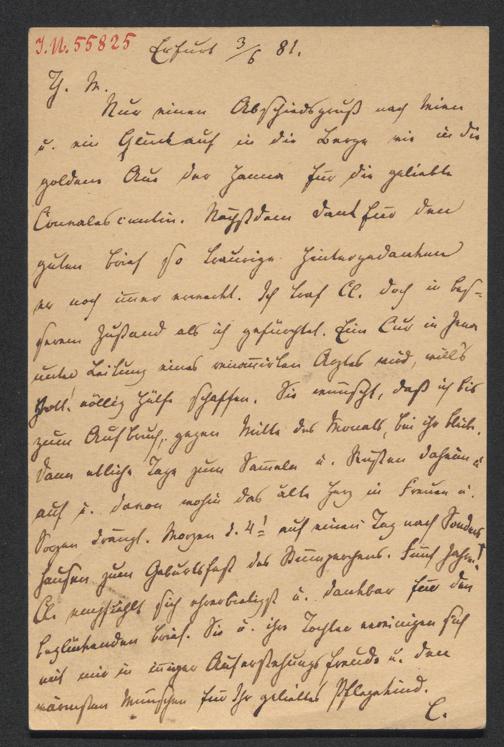 J.N. 55825
Erfurt 3/6 81.
Th. M.
Nur einen Abschiedsgruß nach Wien
u. ein Glückauf in die Berge wie in die
goldene Aue der Hanna für die geliebte
Convalescentin. Nächstdem Dank für den
guten Brief so traurige Hintergedanken
er noch immer erweckt. Ich traf Cl. doch in bes-
serem Zustand als ich gefürchtet. Eine Cur in Jena
unter Leitung eines renomirten Arztes wird, will's
Gott! völlig Hülfe schaffen. Sie wünscht, daß ich bis
zum Aufbruch, gegen Mitte des Monats, bei ihr bleibe.
Dann etliche Tage zum Sammeln u. Rüsten daheim u
auf u. davon wohin das alte Herz in Freuen u.
Sorgen drängt. Morgen d. 4t auf einen Tag nach Sonders
hausen zum Geburtsfest des
Cl. empfiehlt sich ehrerbietigst u. dankbar für den
beglückenden Brief. Sie u. ihre Tochter vereinigen sich
mit mir in inniger Auferstehungsfreude u. den
wärmsten Wünschen für Ihr geliebtes Pflegekind.
L.